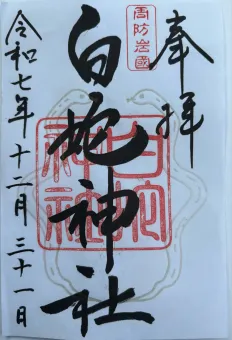 奉拝
周防岩國
白蛇神社
白蛇神社
令和七年十二月三十一日